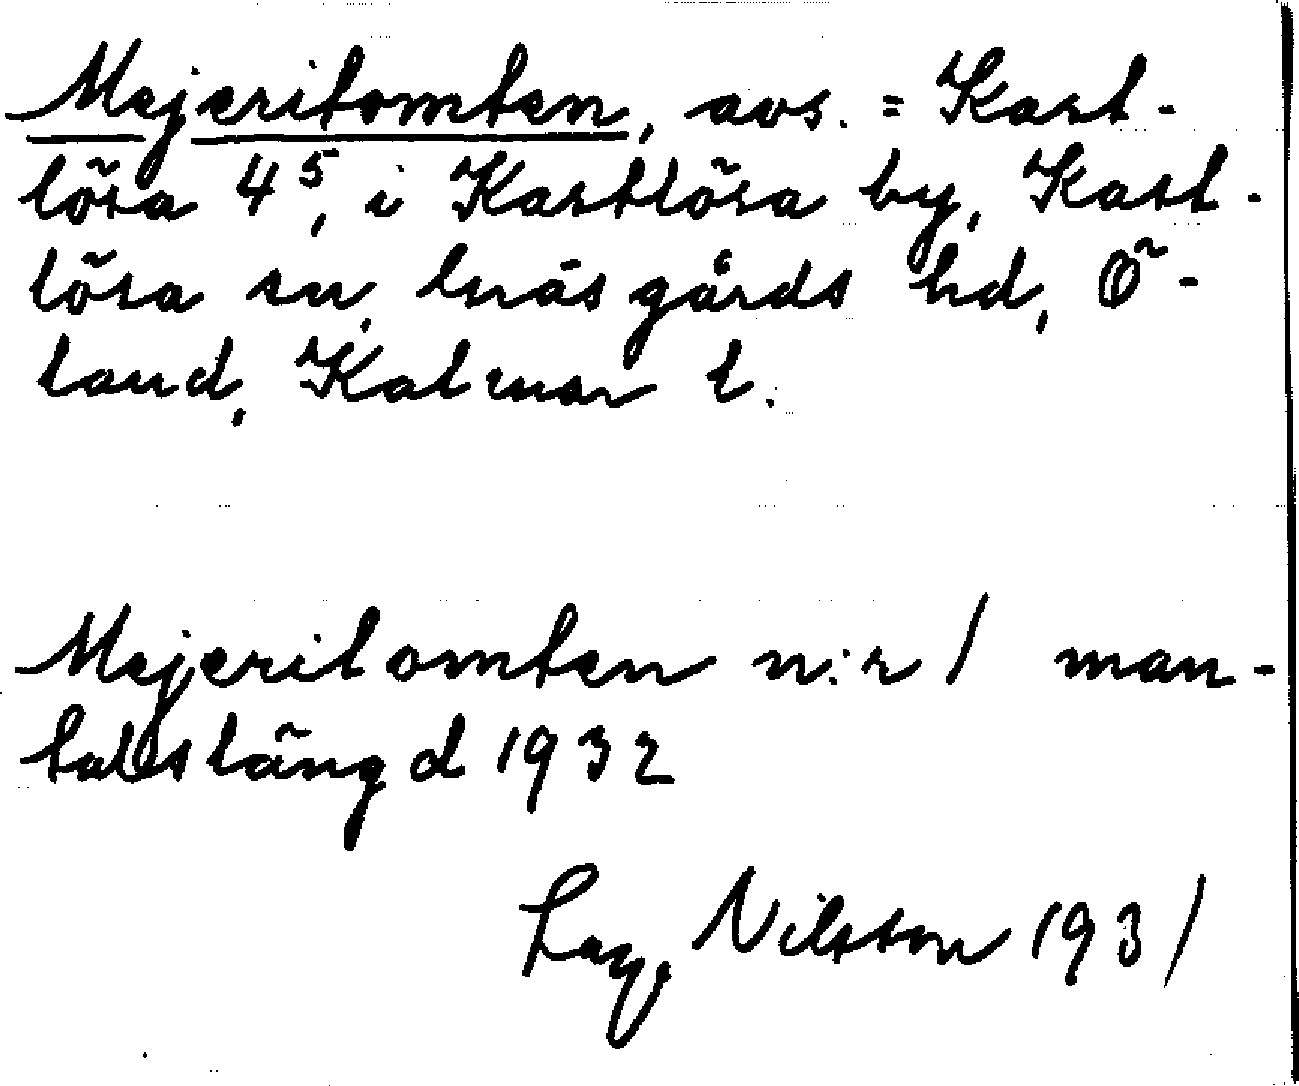 Mejeritomten, avs. = Kast-
lösa 4⁵, i Kastlösa by, Kast-
lösa sn, Gräsgårds hd, Ö-
land, Kalmar l.
Mejeritomten n:r 1 man-
talslängd 1932
Nilsson 1931